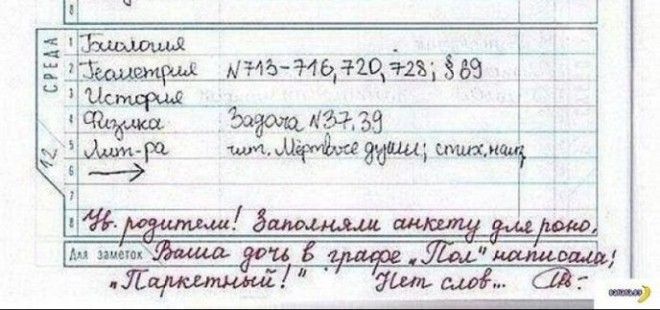 8
СРЕДА
12
1 Биология
2 Геометрия N713-716, 720, 728; § 89
3 История
4 Физика Задача N37, 39
5 Лит-ра чит. Мёртвые души; стих. наиз
6 →
7
8 Ув. родители! Заполняли анкету для роно.
Для заметок Ваша дочь в графе „Пол" написала:
„Паркетный!" Нет слов...